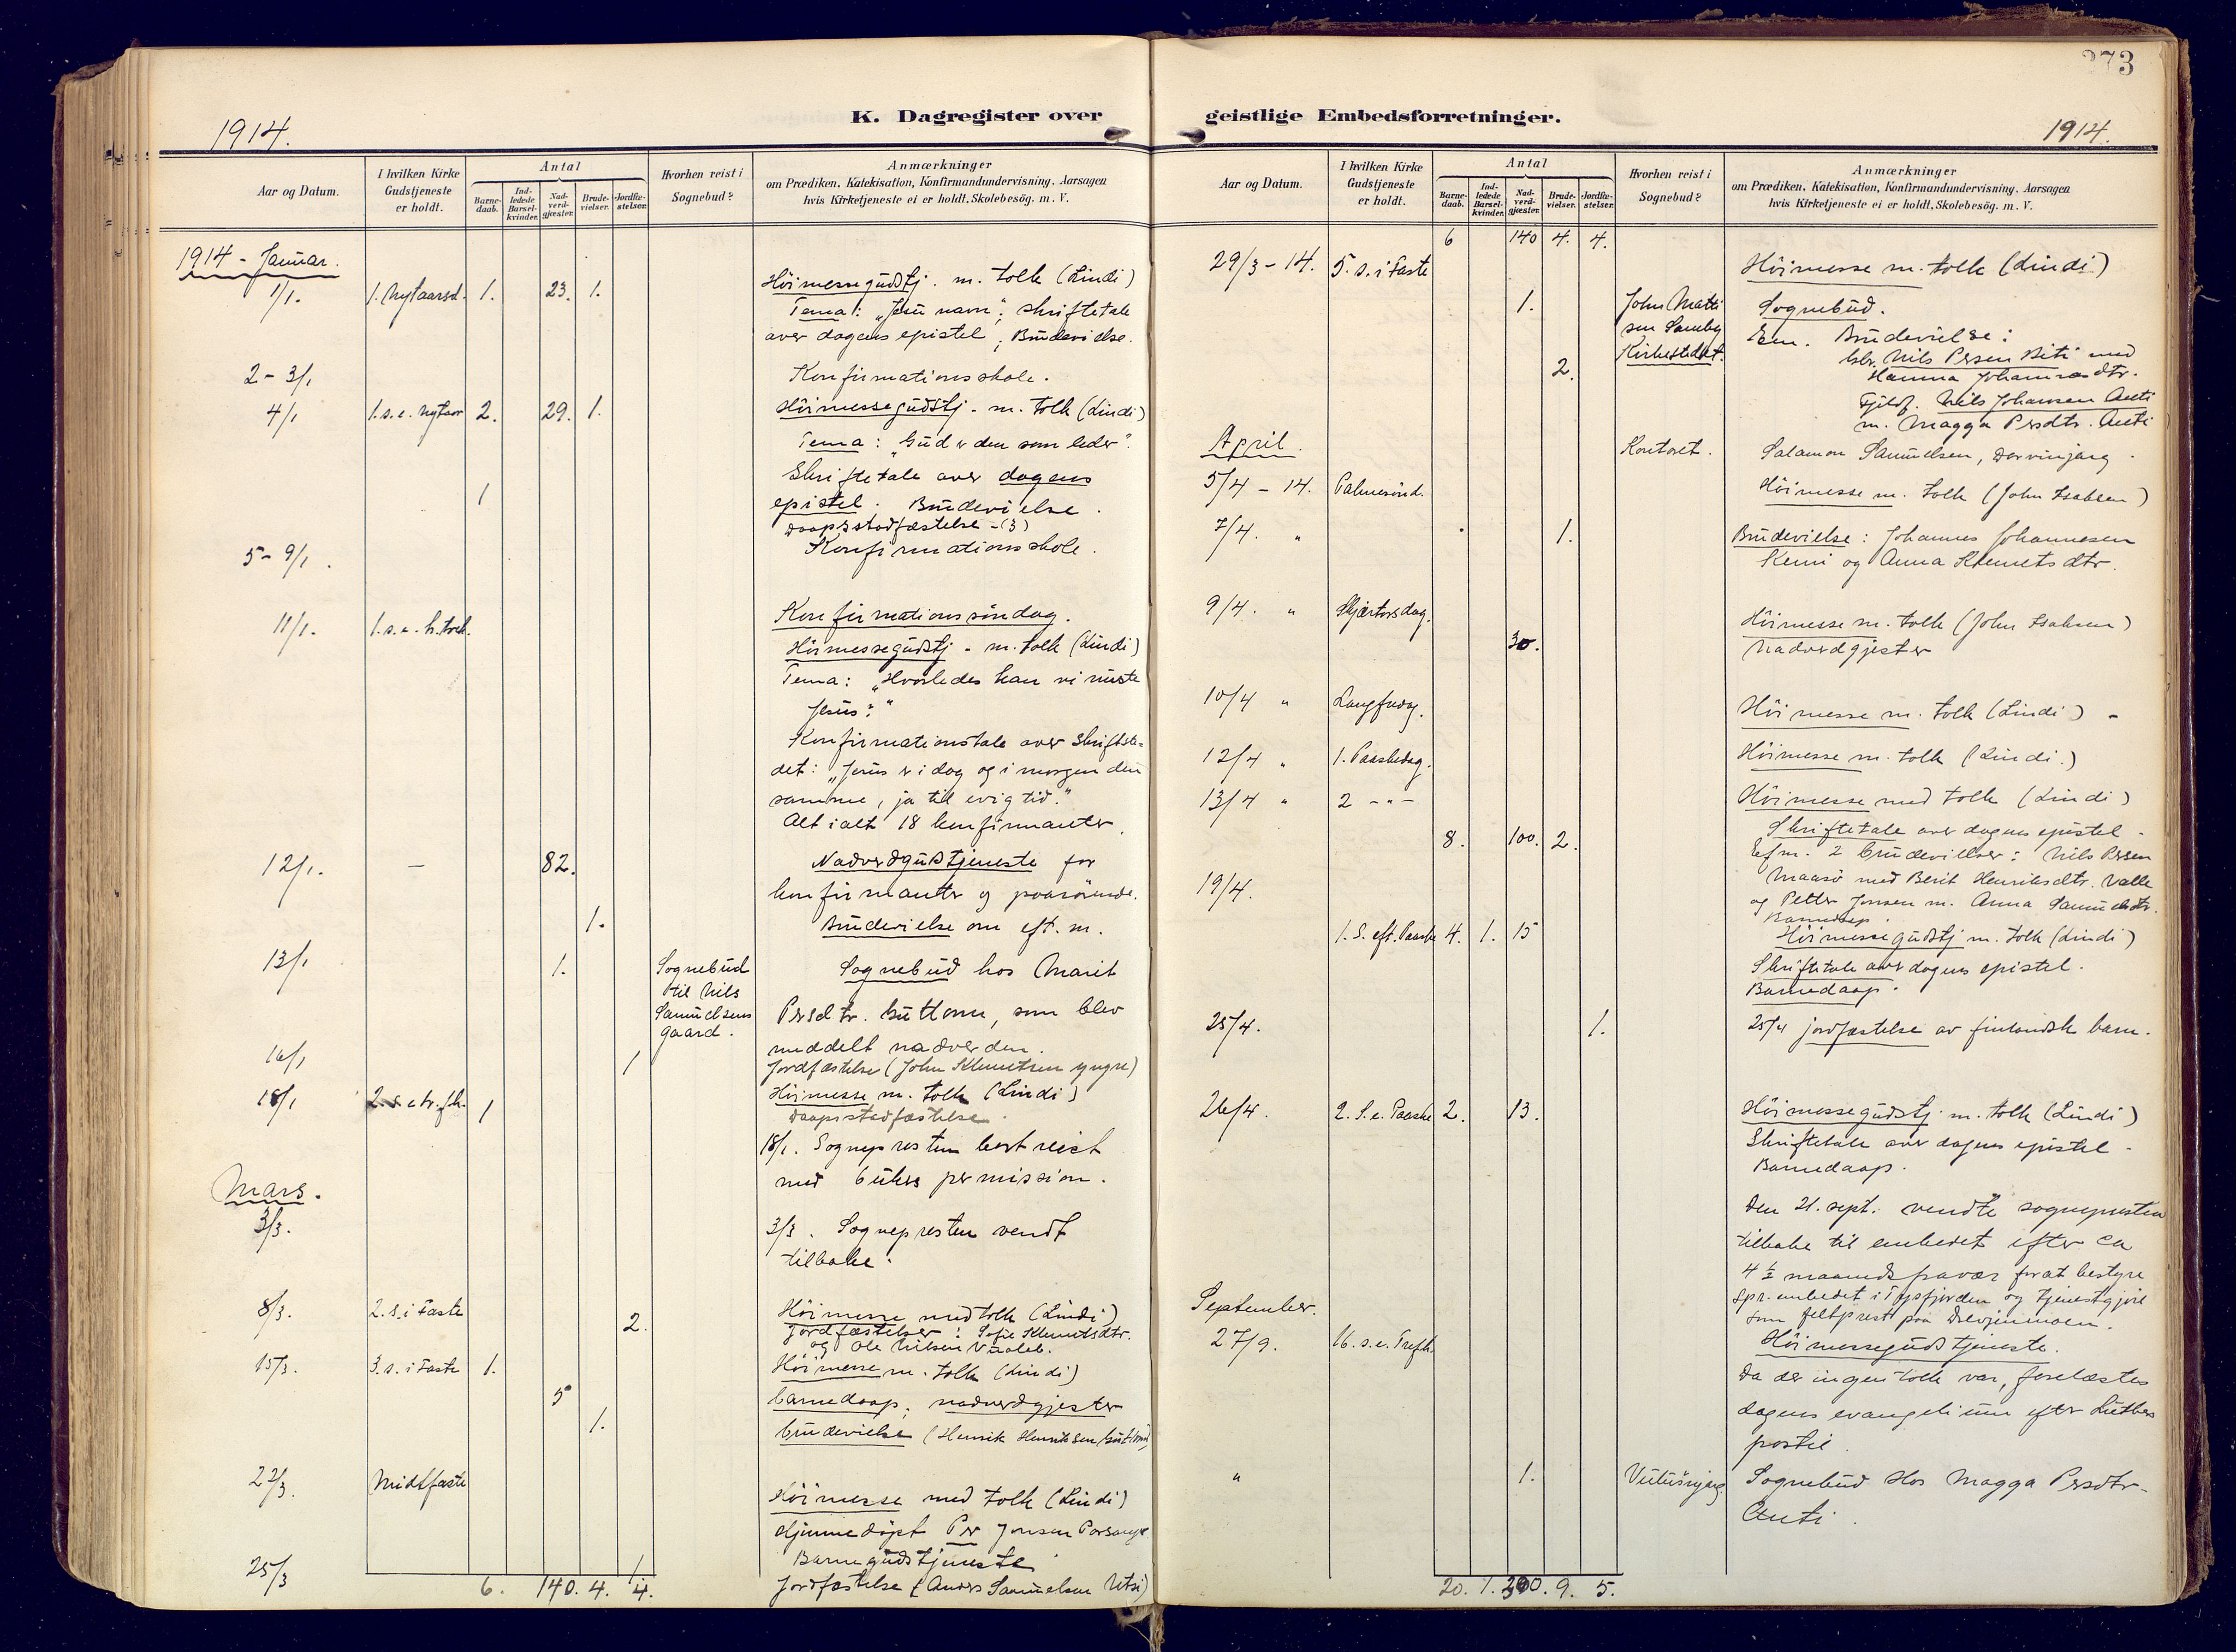 373
K. Dagregister over geistlige Embedsforretninger.
1914.
1914.
Aar og Datum.
I hvilken Kirke Gudstjeneste er holdt.
Antal
Barne-daab.
Ind-ledede Barsel-kvinder.
Nad-verd-gjæster.
Brude-vielser.
Jordfæ-stelser.
Hvorhen reist i Sognebud?
Anmærkninger
om Prædiken, Katekisation, Konfirmandundervisning, Aarsagen
hvis Kirketjeneste ei er holdt, Skolebesög, m. V.
1914 - Januar.
1/1. 1. Nytaarsd. 1. 23. 1. Höimessegudstj. m. tolk (Lindi)
Tema: „Jesu navn“; skriftetale
over dagens epistel; Brudevielse.
2-3/1 Konfirmationsskole.
4/1 1. s. e. nytaar 2. 29. 1. Höimessegudstj. m. tolk (Lindi)
Tema: „Gud er den som leder“.
Skriftetale over dagens
1 epistel. Brudevielse.
Daapsstadfæstelse -(3)
5-9/1. Konfirmationsskole.
11/1. 1. s. e. h. trek. Konfirmationssöndag.
Höimessegudstj - m. tolk (Lindi)
Tema: „Hvorledes kan vi miste
Jesus?“
Konfirmationstale over Skriftste-
det: „Jesus er i dag og i morgen den
samme, ja til evig tid.“
Alt i alt 18 konfirmanter.
12/1. — 82. Nadverdgudstjeneste for
konfirmanter og paarörende.
1. Brudevielse om eft. m.
13/1 1. Sognebud Sognebud hos Marit
til Nils
Samuelsens Persdtr. Guttorm, som blev
gaard. meddelt nadverden.
16/1 1 Jordfæstelse (John Klemetsen yngre)
18/1 2. s. e tr. fh. 1 Höimesse m. tolk (Lindi)
Daapsstadfæstelse
18/1. Sognepresten bortreist
med 6 ukers permission.
Mars.
3/3. 3/3. Sognepresten vendt
tilbake.
8/3. 2. s. i Faste 2. Höimesse med tolk (Lindi)
Jordfæstelser: Sofie Klemetsdtr.
og Ole Nilsen
15/3. 3. s. i Faste 1. Höimesse m. tolk (Lindi)
5 barnedaap; nadverdgjester
1. brudevielse (Henrik Henriksen
22/3. Midtfaste Höimesse med tolk (Lindi)
Hjemmedöpt Per Jonsen Porsanger
Barnegudstjeneste
25/3 1 Jordfæstelse (Anders Samuelsen Utsi)
6. 140. 4. 4.
Aar og Datum.
I hvilken Kirke Gudstjeneste er holdt.
Antal
Barne-daab.
Ind-ledede Barsel-kvinder.
Nad-verd-gjæster.
Brude-vielser.
Jordfæ-stelser.
Hvorhen reist i Sognebud?
Anmærkninger
om Prædiken, Katekisation, Konfirmandundervisning, Aarsagen
hvis Kirketjeneste ei er holdt, Skolebesög, m. V.
6 140 4. 4.
29/3 - 14. 5. s. i Faste Höimesse m. tolk (Lindi)
1. John Matti Sognebud.
sen Samby Em. Brudevielse:
Kirkestedet.
2. Nils Persen Biti med
Hanna Johannesdtr.
Fjeldf. Nils Johansen Anti
m. Magga Persdtr. Anti
April. Kontoret. Salamon Samuelsen,
5/4 - 14. Palmesönd. Höimesse m. tolk (John Isaksen)
7/4. " 1. Brudevielse: Johannes Johannesen
Kemi og Anna Klemetsdtr.
9/4. " Skjærtorsdag. Höimesse m. tolk (John Isaksen)
30. Nadverdgjester
10/4 " Langfredag. Höimesse m. tolk (Lindi) -
12/4 " 1. Paaskedag. Höimesse m. tolk (Lindi.)
13/4 " 2 -"- Höimesse med tolk (Lindi)
Skriftetale over dagens epistel -
8. 100. 2. Eefm. 2 brudevielser: Nils Persen
Maasö med Berit Henriksdtr. Valle
19/4. og Petter Jonsen m. Anna Samuelsdtr.
Barnedaap.
1. S. eft. Paaske 4. 1. 15 Höimessegudstj m. tolk (Lindi)
Skriftetale over dagens epistel.
Barnedaap.
25/4. 1. 25/4 jordfæstelse av finlandsk barn.
26/4. 2. S. e. Paaske 2. 13. Höimessegudstj. m. tolk (Lindi)
Skriftetale over dagens epistel -
Barnedaap.
Den 21. sept. vendte sognepresten
tilbake til embedet efter ca
4 ½ maaneds fravær for at bestyre
Spr. embedet i Tysfjorden og tjenestgjöre
September. som feltprest paa
27/9. 16. s. e. Trefh. Höimessegudstjeneste.
Da der ingen tolk var, forelæstes
dagens evangelium efter Luthers
postil.
" 1. Sognebud hos Magga Persdtr.
Anti.
20. 1. 300. 9. 5.